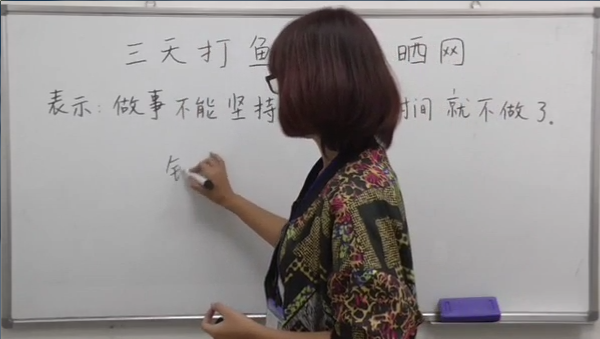 三天打鱼 晒网
表示:做事不能坚持 时间就不做了。